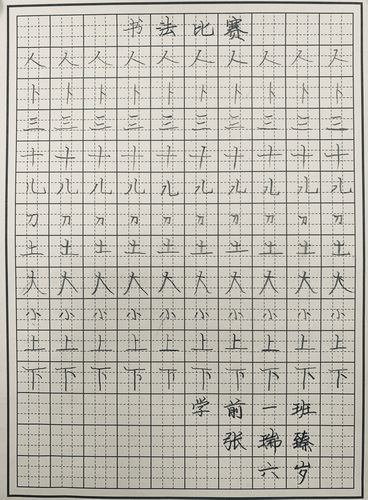 书法比赛
人人人人人人人人人人
卜卜卜卜卜卜卜卜卜卜
三三三三三三三三三三
十十十十十十十十十十
儿儿儿儿儿儿儿儿儿儿
刀刀刀刀刀刀刀刀刀刀
土土土土土土土土土土
大大大大大大大大大大
小小小小小小小小小小
上上上上上上上上上上
下下下下下下下下下下
学前一班
张瑞臻
六岁